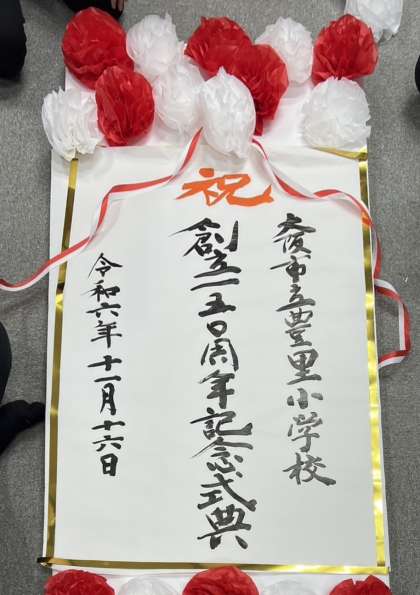 祝
大阪市立豊里小学校
創立一五〇周年記念式典
令和六年十一月十六日